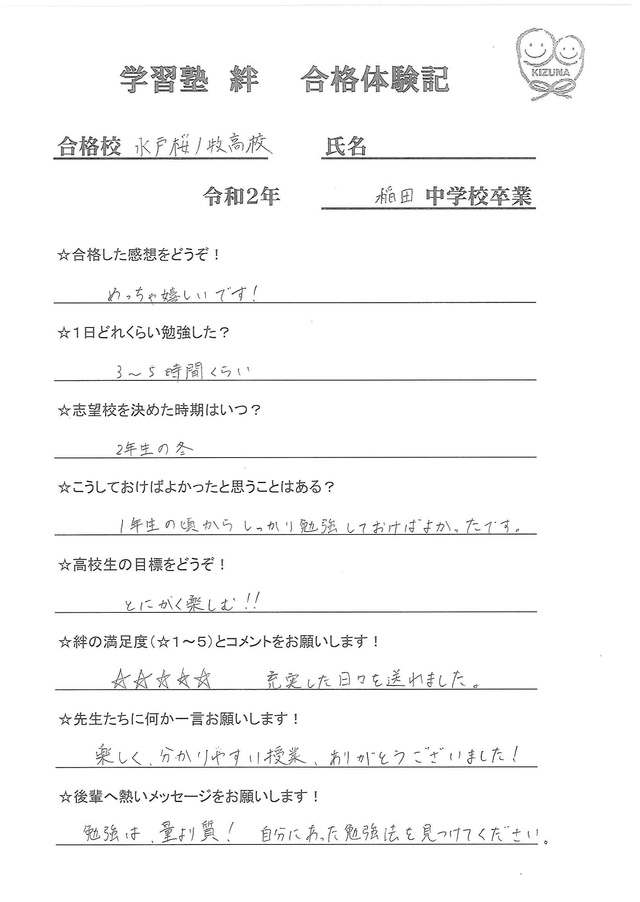 KIZUNA
学習塾 絆 合格体験記
合格校 水戸桜ノ牧高校 氏名
令和2年 稲田 中学校卒業
☆合格した感想をどうぞ！
めっちゃ嬉しいです！
☆1日どれくらい勉強した？
3～5時間くらい
☆志望校を決めた時期はいつ？
2年生の冬
☆こうしておけばよかったと思うことはある？
1年生の頃からしっかり勉強しておけばよかったです。
☆高校生の目標をどうぞ！
とにかく楽しむ!!
☆絆の満足度(☆1～5)とコメントをお願いします！
☆☆☆☆☆ 充実した日々を送れました。
☆先生たちに何か一言お願いします！
楽しく、分かりやすい授業、ありがとうございました！
☆後輩へ熱いメッセージをお願いします！
勉強は、量より質！ 自分にあった勉強法を見つけてください。